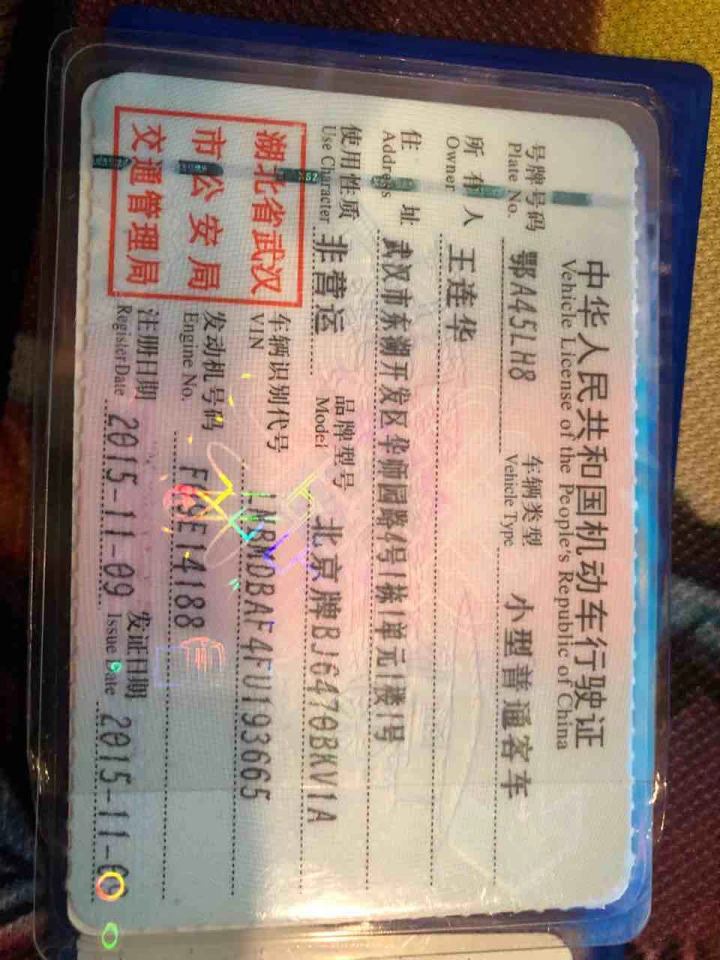 中华人民共和国机动车行驶证
Vehicle License of the People's Republic of China
号牌号码 鄂A45LH8 车辆类型 小型普通客车
Plate No. Vehicle Type
所有人 王连华
Owner
住址 武汉市东湖开发区华师园路4号1栋1单元1楼1号
Address
使用性质 非营运 品牌型号 北京牌BJ6470BKV1A
Use Character Model
湖北省武汉
市公安局
交通管理局
车辆识别代号 LNBMDBAF4FU193665
VIN
发动机号码
Engine No.
注册日期 2015-11-09 发证日期 2015-11-09
Register Date Issue Date